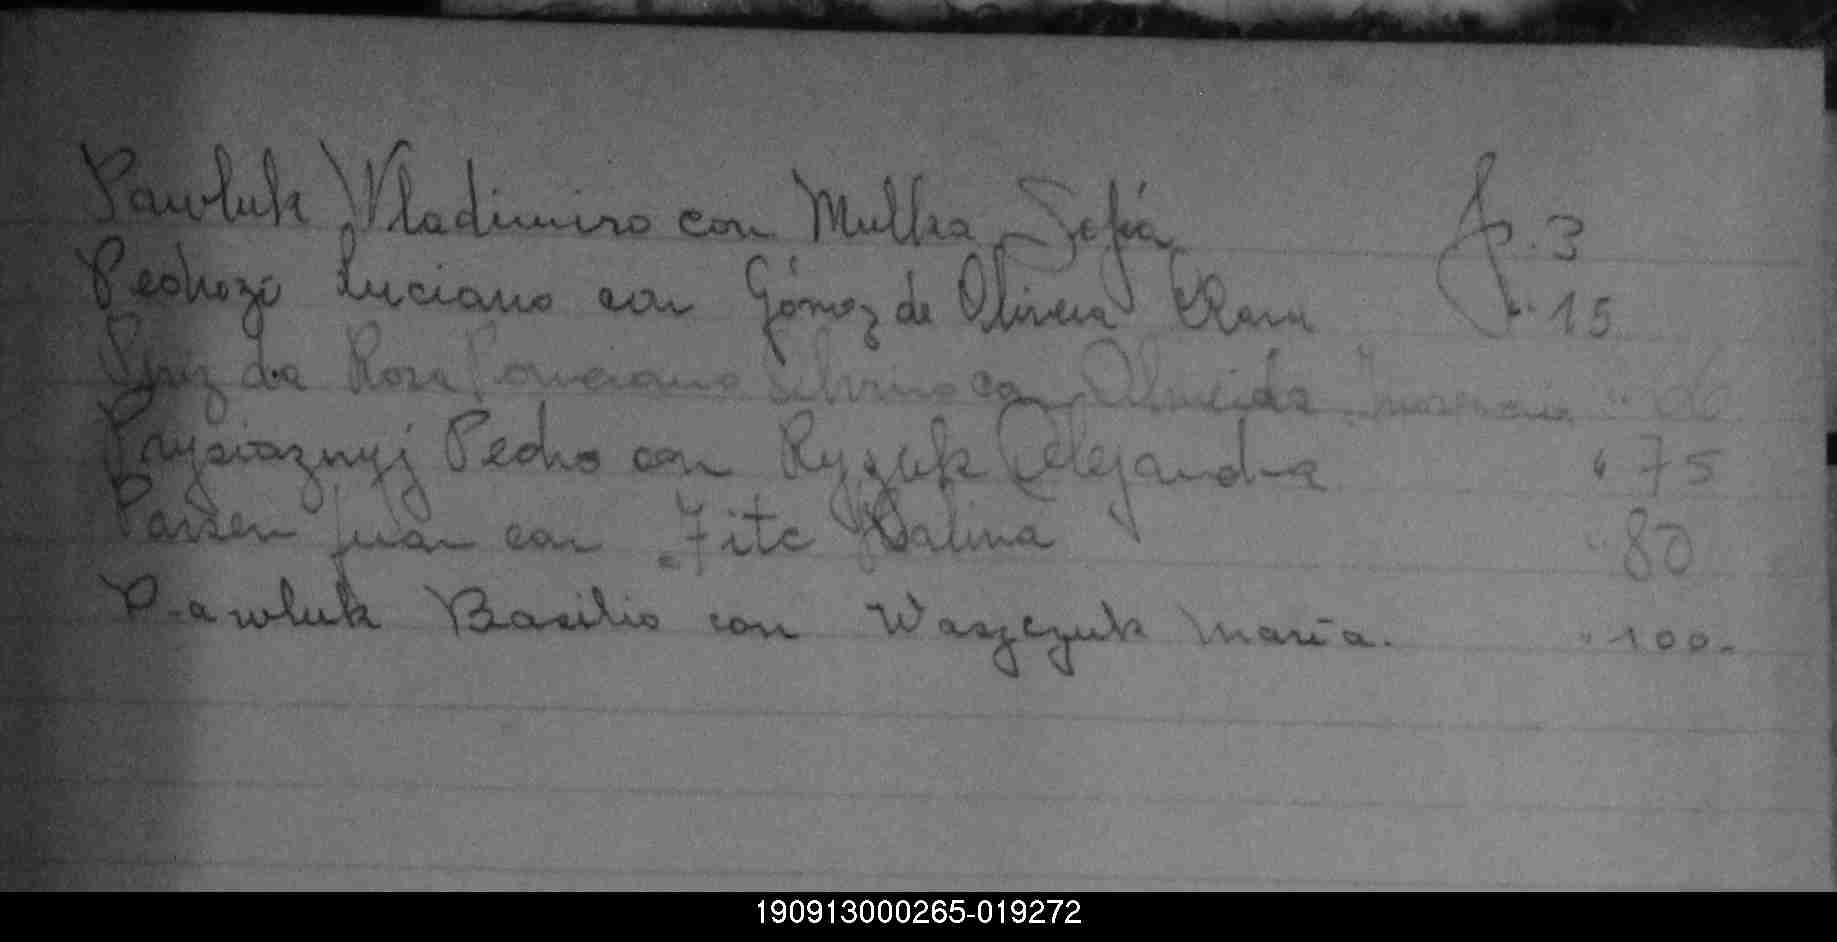 Pawluk Vladimiro con Mulka Sofía fs. 3
Pedrozo Luciano con Gómez de Olivera Clara " 15
da Rosa Ponciano Silvino con Almeida
Prysiaznyj Pedro con Ryzuk Alejandra " 75
Passen Juan con Fitc Halina " 80
Pawluk Basilio con Waszczuk María. " 100-
190913000265-019272